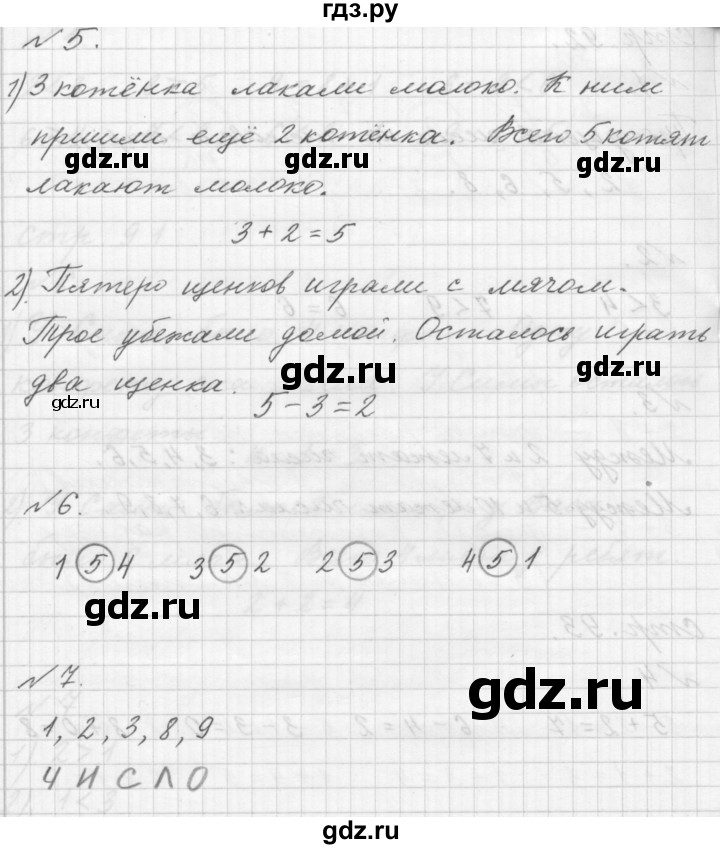 гдз.ру
№5.
1) 3 котёнка лакали молоко. К ним
пришли ещё 2 котёнка. Всего 5 котят
gdz.ru gdz.ru gdz.ru
лакают молоко.
3+2=5
2). Пятеро щенков играли с мячом.
Трое убежали домой. Осталось играть
gdz.ru gdz.ru
два щенка.
gdz.ru
5-3=2
№6.
1 5 4 3 5 2 2 5 3 4 5 1
gdz.ru gdz.ru
№7.
gdz.ru
1, 2, 3, 8, 9
Ч И С Л О
gdz.ru gdz.ru